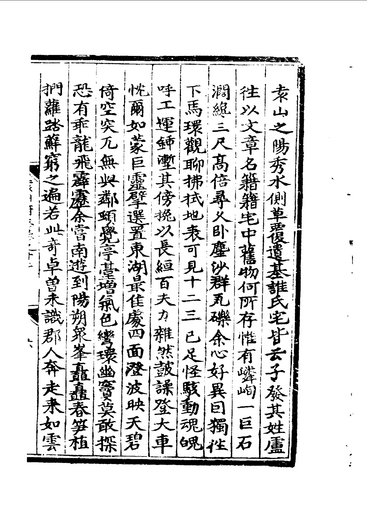 袁山之陽秀水側草覆遺基誰氏宅皆云子發其姓盧
往以文章名籍籍宅中舊物何所存惟有嶙峋一巨石
濶纔三尺高倍尋久卧塵沙群瓦礫余心好異囙獨往
下馬環觀聊拂拭地表可見十二三已足怪駭動魂魄
呼工運鍤塹其傍挽以長縆百夫力雜然鼓譟登大車
恍爾如蒙巨靈擘選置東湖最佳處四面澄波映天碧
倚空突兀無與鄰頓覺亭臺增氣色巒環幽竇莫敢探
恐有乖龍飛霹靂余嘗南遊到陽朔衆峯矗矗春笋植
捫蘿踏蘚窮之遍若此奇卓曽未識郡人奔走来如雲